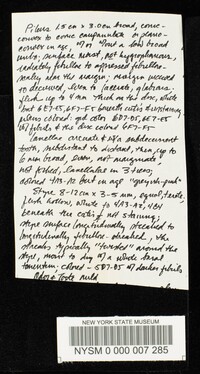 Pileus 1.5 cm x 3.0 cm broad, conic-
convex to conic campanulate or plano-
convex in age, w/ or w/out a low broad
umbo, surface moist, not hygrophanous,
radiately fibrillose to appressed fibrillose,
scaly near the margin; margin incurved
to decurved, even to
flesh up to 4 mm thick in the disc, white
but 6E7-5, 6F7-5 beneath cuticle
colored: gnd color 6D7-5, 6E7-5
w/ fibrils & the disc colored 6F7-5
Lamellae arcuate & w/a subdecurrent
tooth, subdistant to distant, up to
6 mm broad, even, not marginate
not forked, lamellulae in 3 tiers;
colored 7A3 to but in age "grayish-pink"
Stipe 8-12 cm x 3-5 mm, equal, terete,
flesh hollow, white to 4A3-A2, 4B4
beneath the cuticle, not staining;
stipe surface longitudinally streaked to
longitudinally fibrillose-streaked, the
streaks typically "twisted" around the
stipe, moist to dry w/ a whole basal
tomentum; colored - 5D7-5 w/ darker fibrils
Odor & Taste mild
NEW YORK STATE MUSEUM
NYSM 0 000 007 285